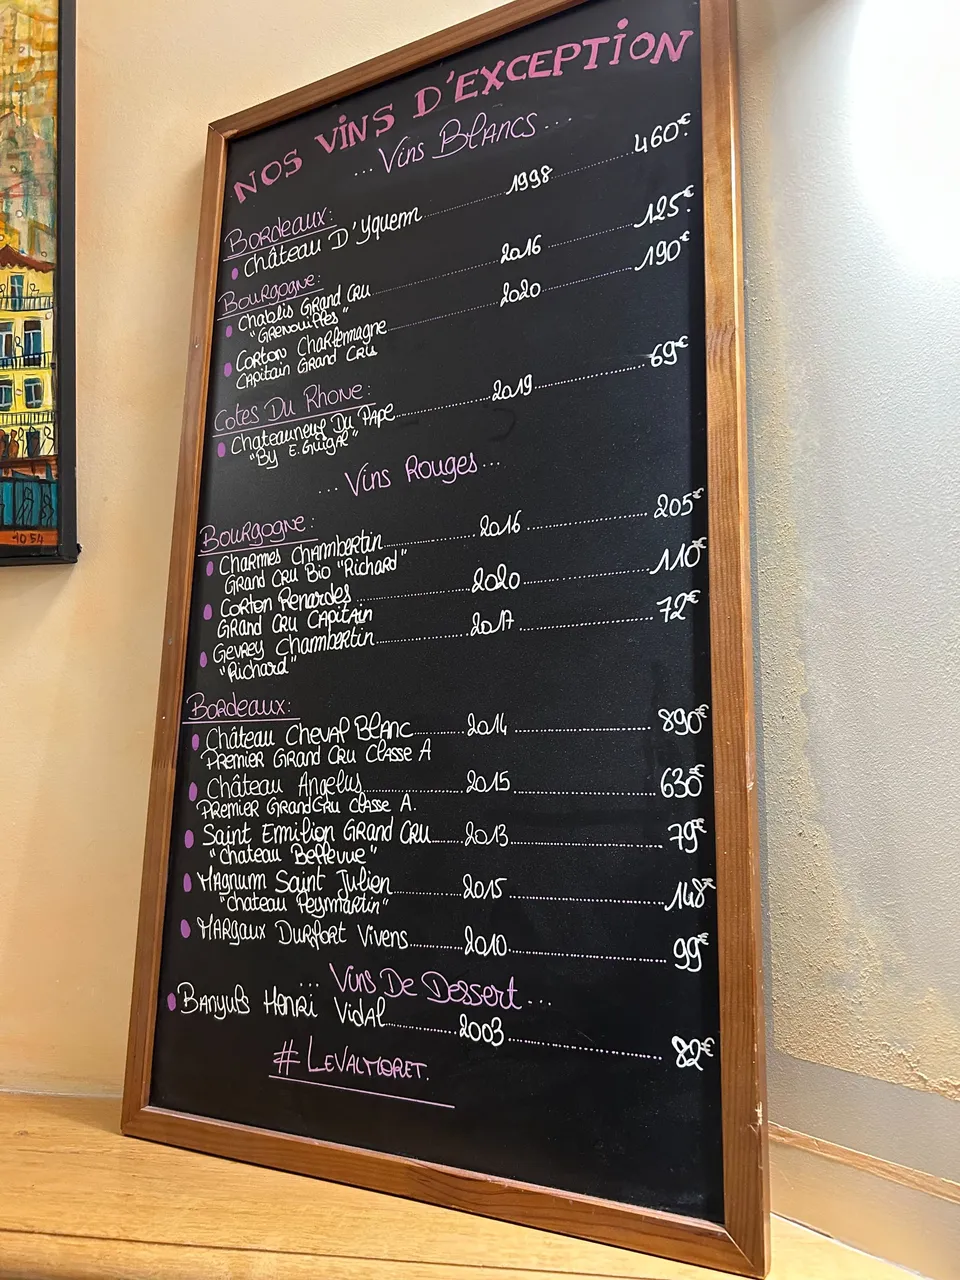 NOS VINS D'EXCEPTION
... Vins Blancs ...
Bordeaux:
Château D'Yquem 1998 460€
Bourgogne:
Chablis Grand Cru 2016 125€
"Grenouilles"
Corton Charlemagne 2020 190€
Capitain Grand Cru
Cotes Du Rhone:
Chateauneuf Du Pape 2019 69€
"By E. Guigal"
... Vins Rouges ...
Bourgogne:
Charmes Chambertin 2016 205€
Grand Cru Bio "Richard"
Corton Renardes 2020 110€
Grand Cru Capitain
Gevrey Chambertin 2017 72€
"Richard"
Bordeaux:
Château Cheval Blanc 2014 890€
Premier Grand Cru Classe A
Château Angelus 2015 630€
Premier Grand Cru Classe A.
Saint Emilion Grand Cru 2013 79€
"Chateau Bellevue"
Magnum Saint Julien 2015 148€
"Chateau Peymartin"
Margaux Durfort Vivens 2010 99€
... Vins De Dessert ...
Banyuls Henri Vidal 2003 82€
#LEVALMORET.
1054